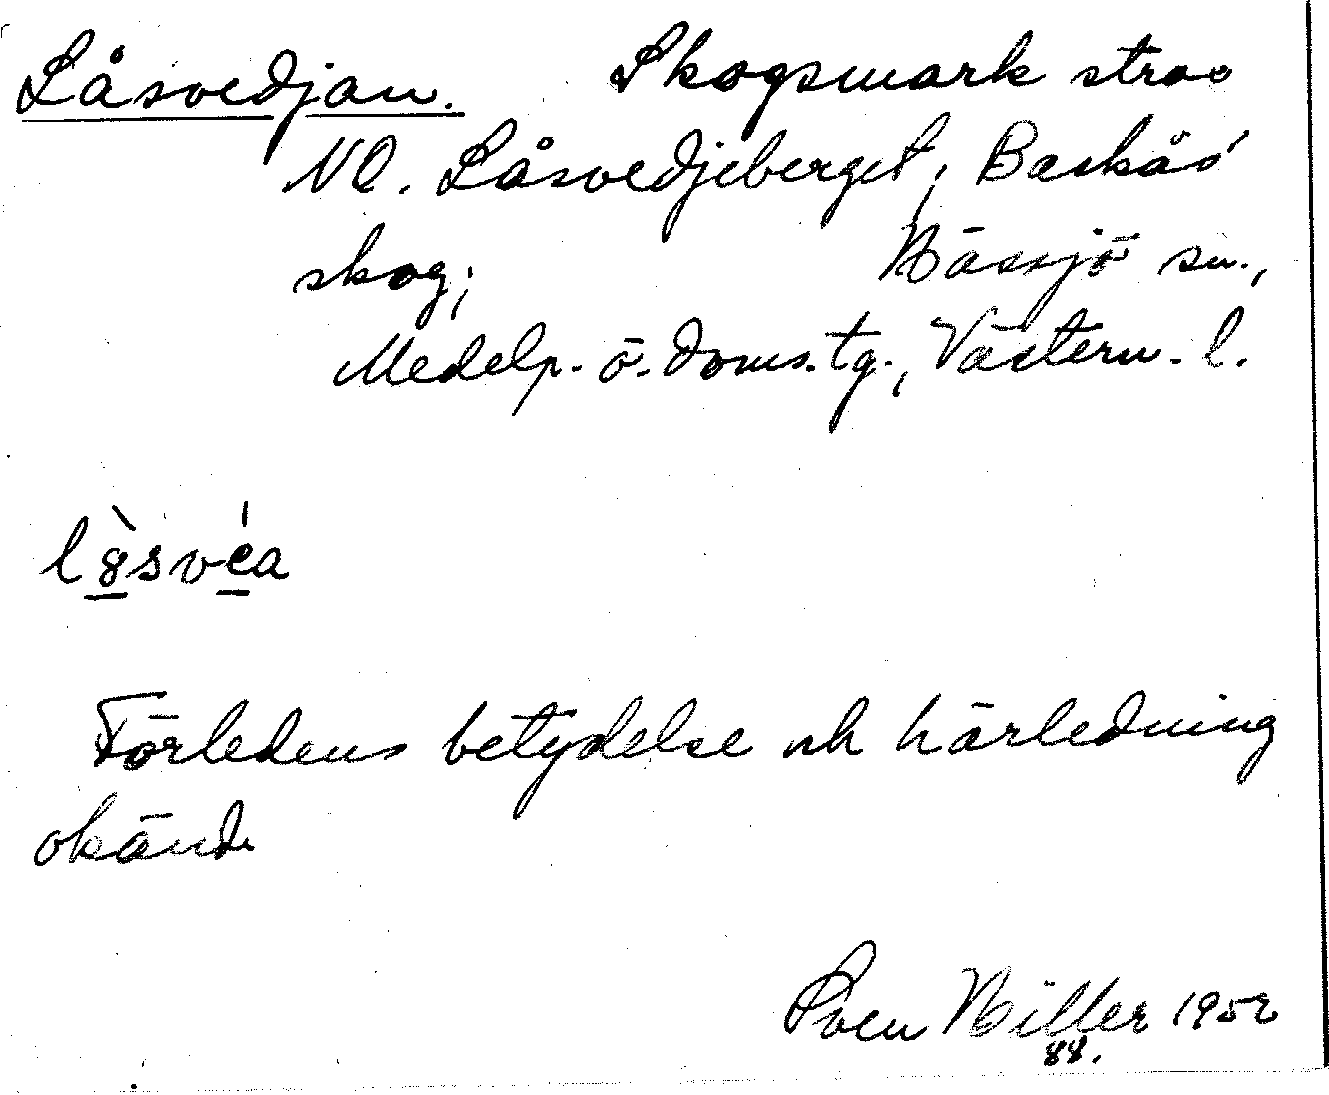 Låsvedjan. Skogsmark strax
NO. Låsvedjeberget; Backås'
skog; Hässjö sn.,
Medelp. ö. doms.tg., Västern. l.
Förledens betydelse och härledning
okänd.
Sven Hiller 1952
88.